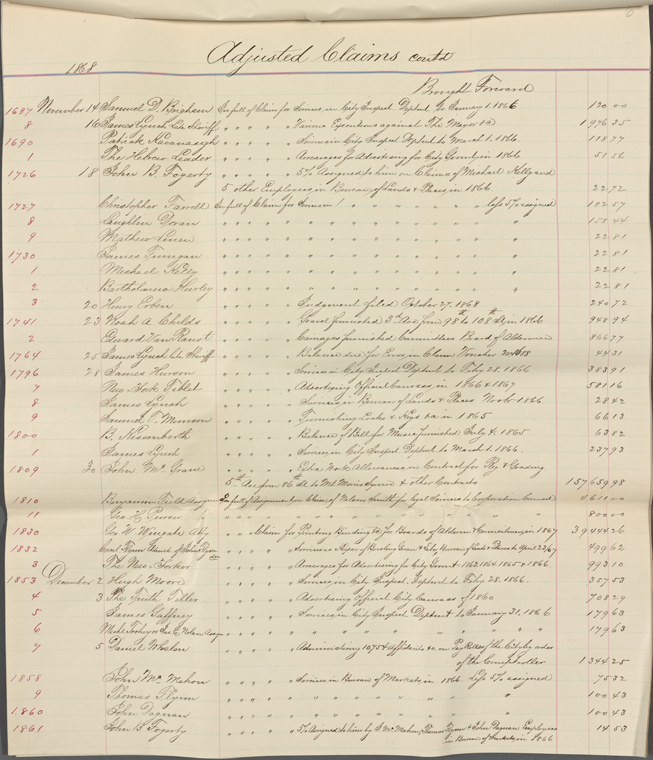 6
1868 Adjusted Claims contd
Brought Forward
1687 November 14 Samuel D. Brigham In full of Claim for Services in City Inspect Deptmt to January 1. 1866 120 00
8 16 James Lynch late Sheriff " " " " Various Executions against The Mayor &c 1976 25
1690 Patrick Kavanagh " " " " Services in City Inspect Deptmt to March 1. 1866. 118 77
1 The Hebrew Leader " " " " Arrearages for Advertising for City County in 1866 51 56
1726 18 John B. Fogerty " " " " 5% Assigned to him on Claims of Michael Kelly and
5 other Employees in Bureau of Lands & Places in 1866 22 72
1727 Christopher Farrell In full of Claim for Services " " " " " less 5% assigned 182 57
8 Laughlin Doran " " " " 158 44
9 Mathew " " " " 22 81
1730 James Finegan " " " " 22 81
1 Michael Kelly " " " " 22 81
2 Bartholomew Hurley " " " " 22 81
3 20 Henry Erben " " " " Judgment filed October 27. 1868 240 72
1741 23 Noah A. Childs " " " " Gravel furnished 3d Ave from 98th to 108th St in 1866 948 94
2 Edward Van Ranst " " " " Carriages furnished Committees Board of Aldermen 866 77
1764 25 James Lynch late Sheriff " " " " Balance due for Error in Claim Voucher 44 31
1796 28 James Hewson " " " " Services in City Inspect Deptmt to Feby 28. 1866 383 91
7 New York Tablet " " " " Advertising Official Canvass in 1866 & 1867 581 16
8 James Lynch " " " " Services in Bureau of Lands & Places 1866 28 42
9 Samuel T. Munson " " " " Furnishing Locks & Keys &c in 1865 66 13
1800 B. Rissenborth " " " " Balance of Bill for Music furnished July 4. 1865 63 82
1 James Lynch " " " " Services in City Inspect Deptmt to March 1. 1866. 237 93
1809 30 John McGrane " " " " Extra Work Allowances on Contract for Reg & Grading
5th Ave from 86th St to Mt Morris Square & other Contracts 157659 98
1810 Benjamin Field Assignee In full of Judgment on Claim of Nelson Smith for legal Services to Corporation Counsel 4611 00
11 Geo H. Purser " " " " 800 00
1830 Geo W. Wingate Atty " " Claim for Printing Binding &c for Boards of Aldermen & Councilmen in 1867 39444 26
1832 " " " " Services 499 62
3 The New Yorker " " " " Arrearages for Advertising for City County 1863, 1864 1865 & 1866 993 10
1853 December 2 Hugh Moore " " " " Services in City Inspect. Deptmt to Feby 28. 1866. 357 53
4 3 The Truth Teller " " " " Advertising Official City Canvass of 1860 708 29
5 James Gaffney " " " " Services in City Inspect Deptmt to January 31, 1866 179 63
6 " " " " 179 63
7 5 Daniel Whalen " " " " Administering 10754 Affidavits &c on Pay Rolls of the City by order
of the Comptroller 1344 25
1858 John McMahon " " " " Services in Bureau of Markets in 1866 Less 5% assigned 75 32
9 Thomas Flynn " " " " 100 43
1860 John Dagnan " " " " 100 43
1861 John B. Fogerty " " " " 5% Assigned to him by J. McMahon, Thomas Flynn & John Dagnan Employees
in Bureau of Markets, in 1866 14 53